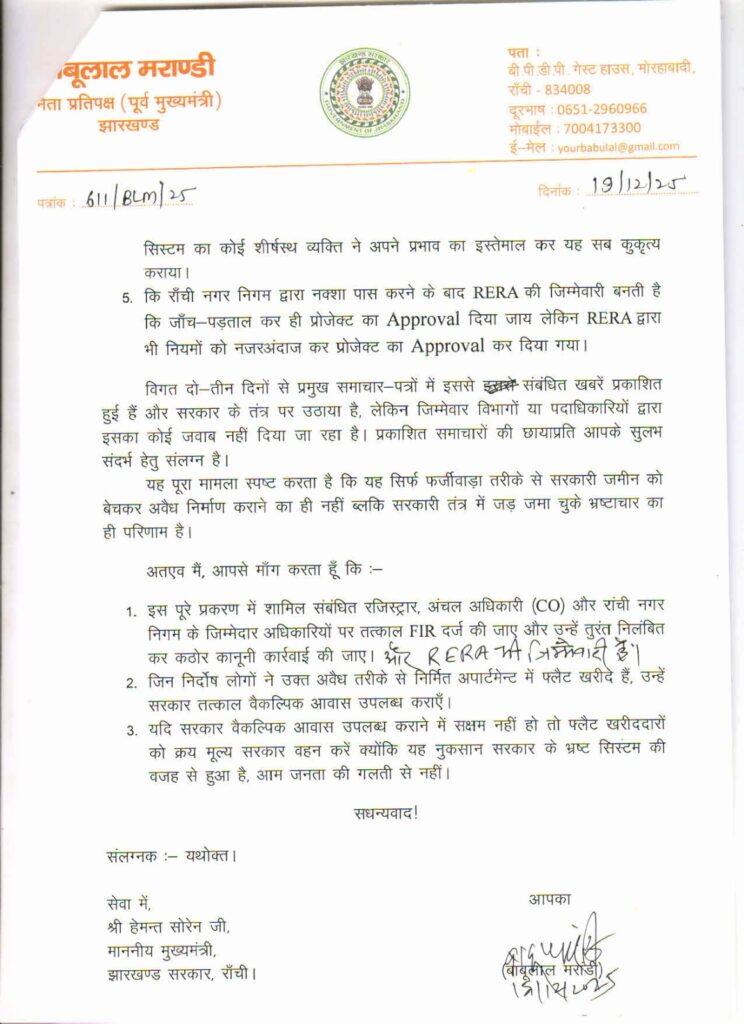 बूलाल मराण्डी
नेता प्रतिपक्ष (पूर्व मुख्यमंत्री)
झारखण्ड
झारखण्ड सरकार
GOVERNMENT OF JHARKHAND
पता :
बी.पी.डी.पी. गेस्ट हाउस, मोरहाबादी,
राँची - 834008
दूरभाष : 0651-2960966
मोबाईल : 7004173300
ई-मेल : yourbabulal@gmail.com
पत्रांक : 611/BLM/25
दिनांक : 19/12/25
सिस्टम का कोई शीर्षस्थ व्यक्ति ने अपने प्रभाव का इस्तेमाल कर यह सब कुकृत्य
कराया।
5. कि राँची नगर निगम द्वारा नक्शा पास करने के बाद RERA की जिम्मेवारी बनती है
कि जाँच–पड़ताल कर ही प्रोजेक्ट का Approval दिया जाय लेकिन RERA द्वारा
भी नियमों को नजरअंदाज कर प्रोजेक्ट का Approval कर दिया गया।
विगत दो–तीन दिनों से प्रमुख समाचार–पत्रों में इससे इससे संबंधित खबरें प्रकाशित
हुई हैं और सरकार के तंत्र पर उठाया है, लेकिन जिम्मेवार विभागों या पदाधिकारियों द्वारा
इसका कोई जवाब नहीं दिया जा रहा है। प्रकाशित समाचारों की छायाप्रति आपके सुलभ
संदर्भ हेतु संलग्न है।
यह पूरा मामला स्पष्ट करता है कि यह सिर्फ फर्जीवाड़ा तरीके से सरकारी जमीन को
बेचकर अवैध निर्माण कराने का ही नहीं ब्लकि सरकारी तंत्र में जड़ जमा चुके भ्रष्टाचार का
ही परिणाम है।
अतएव मैं, आपसे माँग करता हूँ कि :–
1. इस पूरे प्रकरण में शामिल संबंधित रजिस्ट्रार, अंचल अधिकारी (CO) और रांची नगर
निगम के जिम्मेदार अधिकारियों पर तत्काल FIR दर्ज की जाए और उन्हें तुरंत निलंबित
कर कठोर कानूनी कार्रवाई की जाए। और RERA भी जिम्मेवारी है।
2. जिन निर्दोष लोगों ने उक्त अवैध तरीके से निर्मित अपार्टमेन्ट में फ्लैट खरीदे हैं, उन्हें
सरकार तत्काल वैकल्पिक आवास उपलब्ध कराएँ।
3. यदि सरकार वैकल्पिक आवास उपलब्ध कराने में सक्षम नहीं हो तो फ्लैट खरीददारों
को क्रय मूल्य सरकार वहन करें क्योंकि यह नुकसान सरकार के भ्रष्ट सिस्टम की
वजह से हुआ है, आम जनता की गलती से नहीं।
सधन्यवाद!
संलग्नक :– यथोक्त।
सेवा में,
श्री हेमन्त सोरेन जी,
माननीय मुख्यमंत्री,
झारखण्ड सरकार, राँची।
आपका
(बाबूलाल मरांडी)
19/12/2025